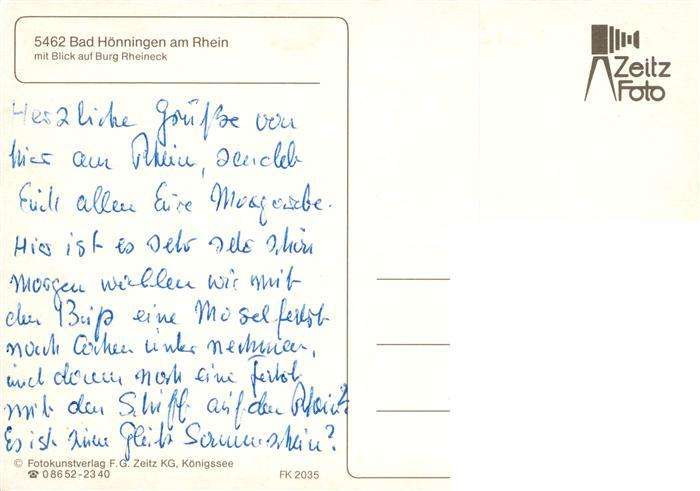 5462 Bad Hönningen am Rhein
mit Blick auf Burg Rheineck
Zeitz
Foto
Herzliche Grüße von
hier am Rhein, sendeb
Euch allen Eure
Hier ist es sehr sehr schön
morgen wir mit
den Buß eine Moselfahrt
nach Cochen unter nechmen,
und dann noch eine Fahrt
mit den Schiff auf den Rhein?
Es ist zum Sonnenschein?
© Fotokunstverlag F. G. Zeitz KG, Königssee
☎ 08652-2340
FK 2035